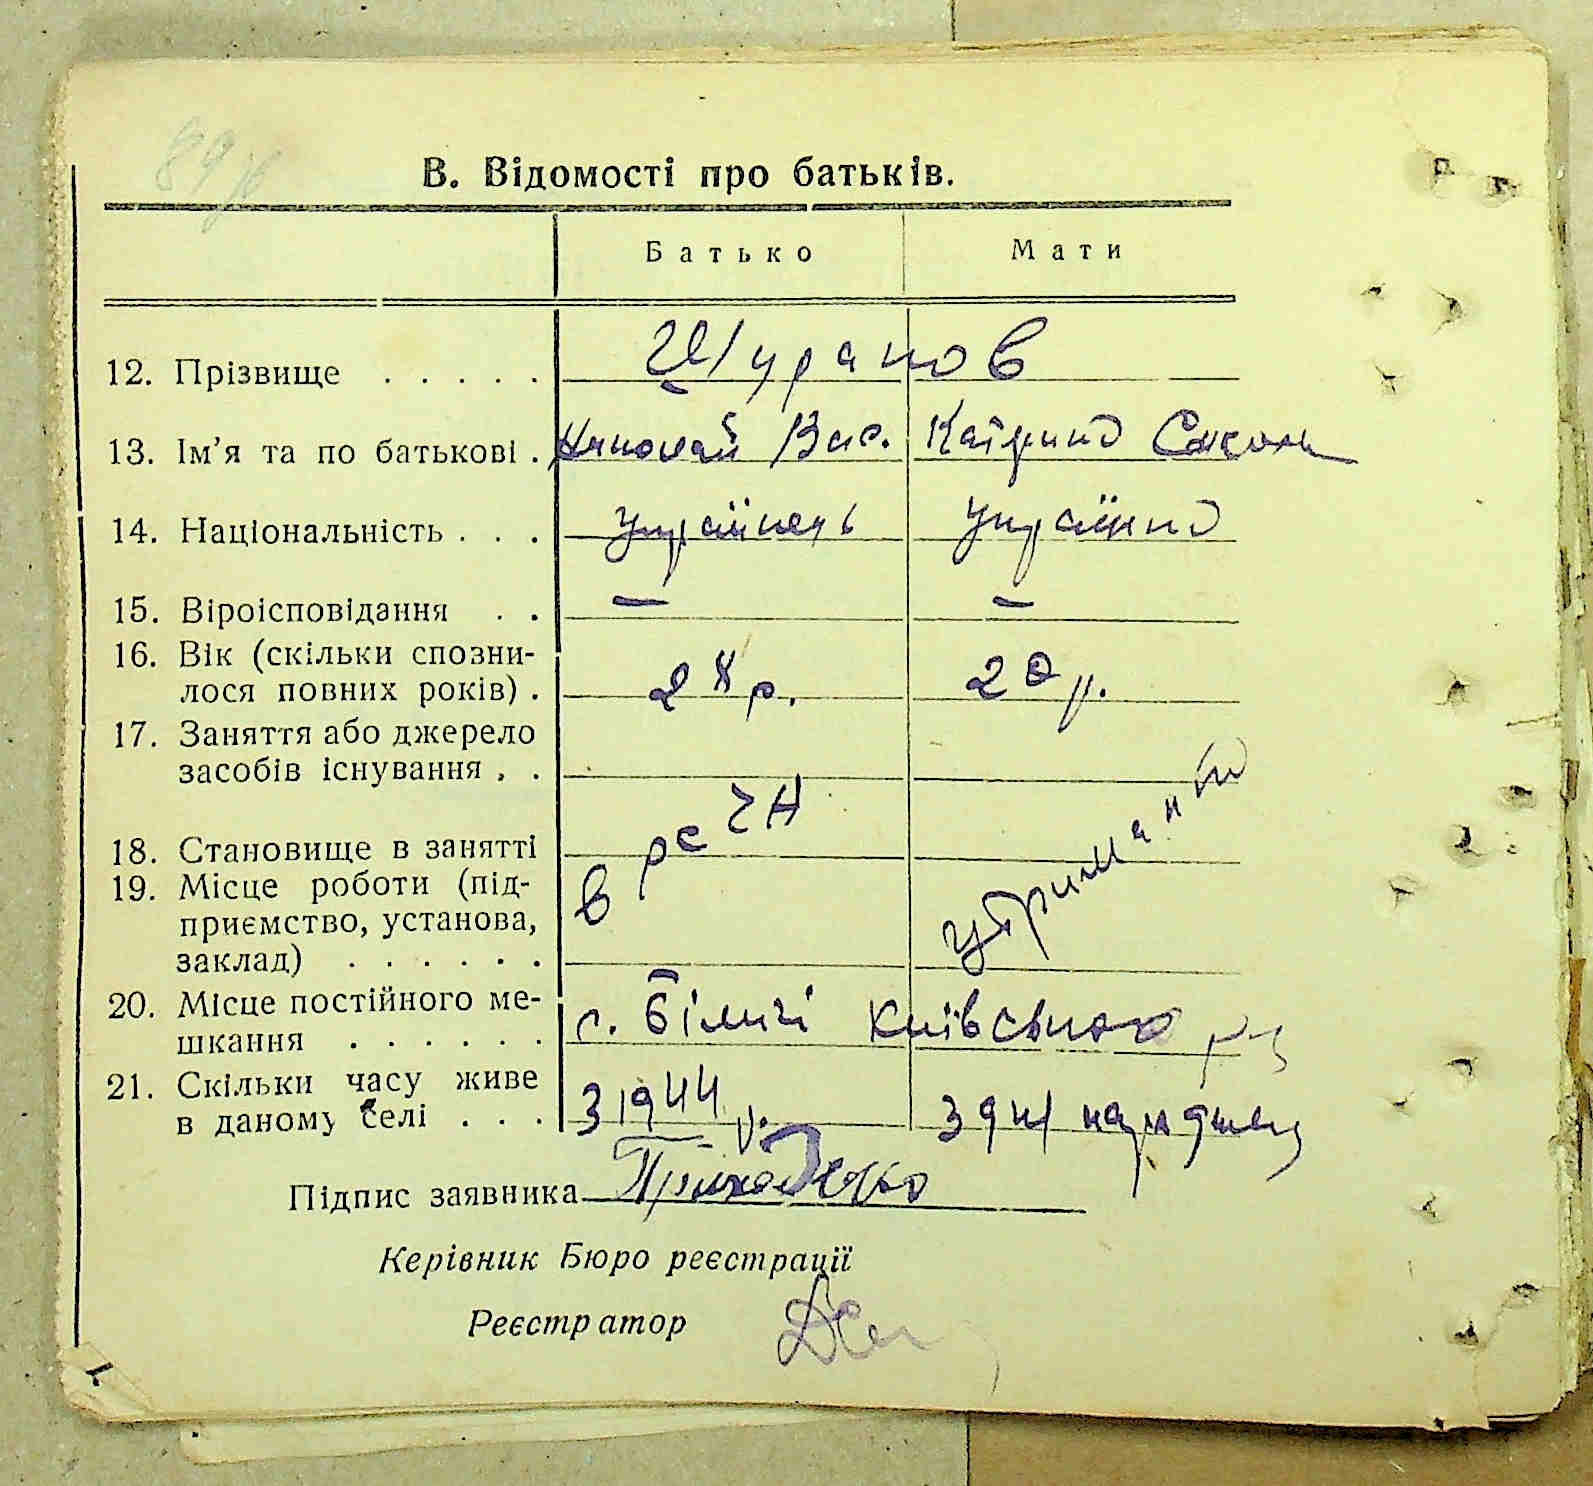 89
В. Відомості про батьків.
Батько Мати
12. Прізвище . . . . . Шуранов
13. Ім’я та по батькові . Николай Вас. Катрина
14. Національність . . . українець українка
15. Віроісповідання . . — —
16. Вік (скільки сповни-
лося повних років) . 28 р. 20 р.
17. Заняття або джерело
засобів існування . .
в рсчн утриманка
18. Становище в занятті
19. Місце роботи (під-
приємство, установа,
заклад) . . . . . .
20. Місце постійного ме-
шкання . . . . . . с. Біличі Київського
21. Скільки часу живе
в даному селі . . . З 1944 р. З дня народжен
Підпис заявника Приходько
Керівник Бюро реєстрації
Реєстратор